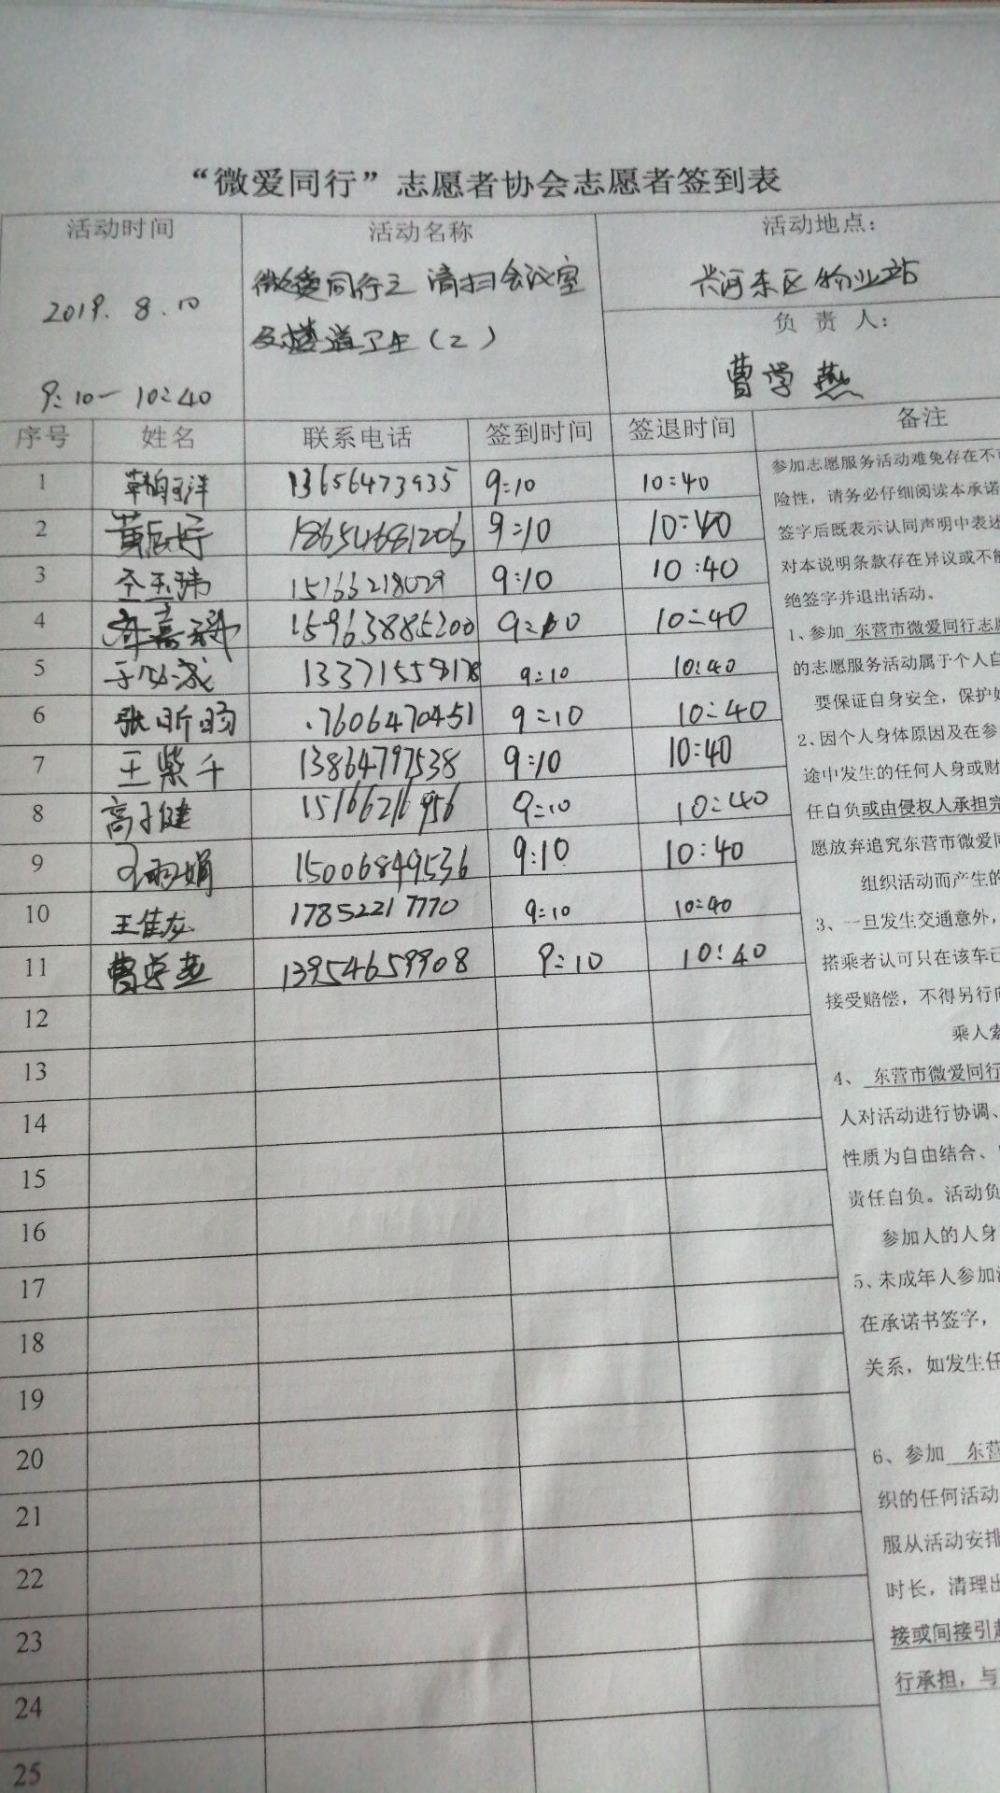 “微爱同行”志愿者协会志愿者签到表
活动时间 活动名称 活动地点：
2019. 8. 10 微爱同行之清扫会议室 兴河东区物业站
及楼道卫生（2） 负责人：
9:10—10:40 曹学燕
序号 姓名 联系电话 签到时间 签退时间 备注
1 13656473935 9:10 10:40
2 18654681206 9:10 10:40
3 15166218029 9:10 10:40
4 15963885200 9:10 10:40
5 13371558178 9:10 10:40
6 张昕玥 17606470451 9:10 10:40
7 王紫千 13864797538 9:10 10:40
8 高子健 9:10 10:40
9 15006849536 9:10 10:40
10 王佳龙 17852217770 9:10 10:40
11 曹学燕 13954659908 9:10 10:40
12
13
14
15
16
17
18
19
20
21
22
23
24
25
参加志愿服务活动难免存在不
险性，请务必仔细阅读本承诺
签字后既表示认同声明中表述
对本说明条款存在异议或不能
绝签字并退出活动。
1、参加 东营市微爱同行志愿
的志愿服务活动属于个人自
要保证自身安全，保护好
2、因个人身体原因及在参
途中发生的任何人身或财
任自负或由侵权人承担完
愿放弃追究东营市微爱同
组织活动而产生的
3、一旦发生交通意外，
搭乘者认可只在该车已
接受赔偿，不得另行向
乘人索
4、 东营市微爱同行
人对活动进行协调、
性质为自由结合、
责任自负。活动负
参加人的人身
5、未成年人参加活
在承诺书签字，
关系，如发生任
6、参加 东营
织的任何活动
服从活动安排
时长，清理出
接或间接引起
行承担，与